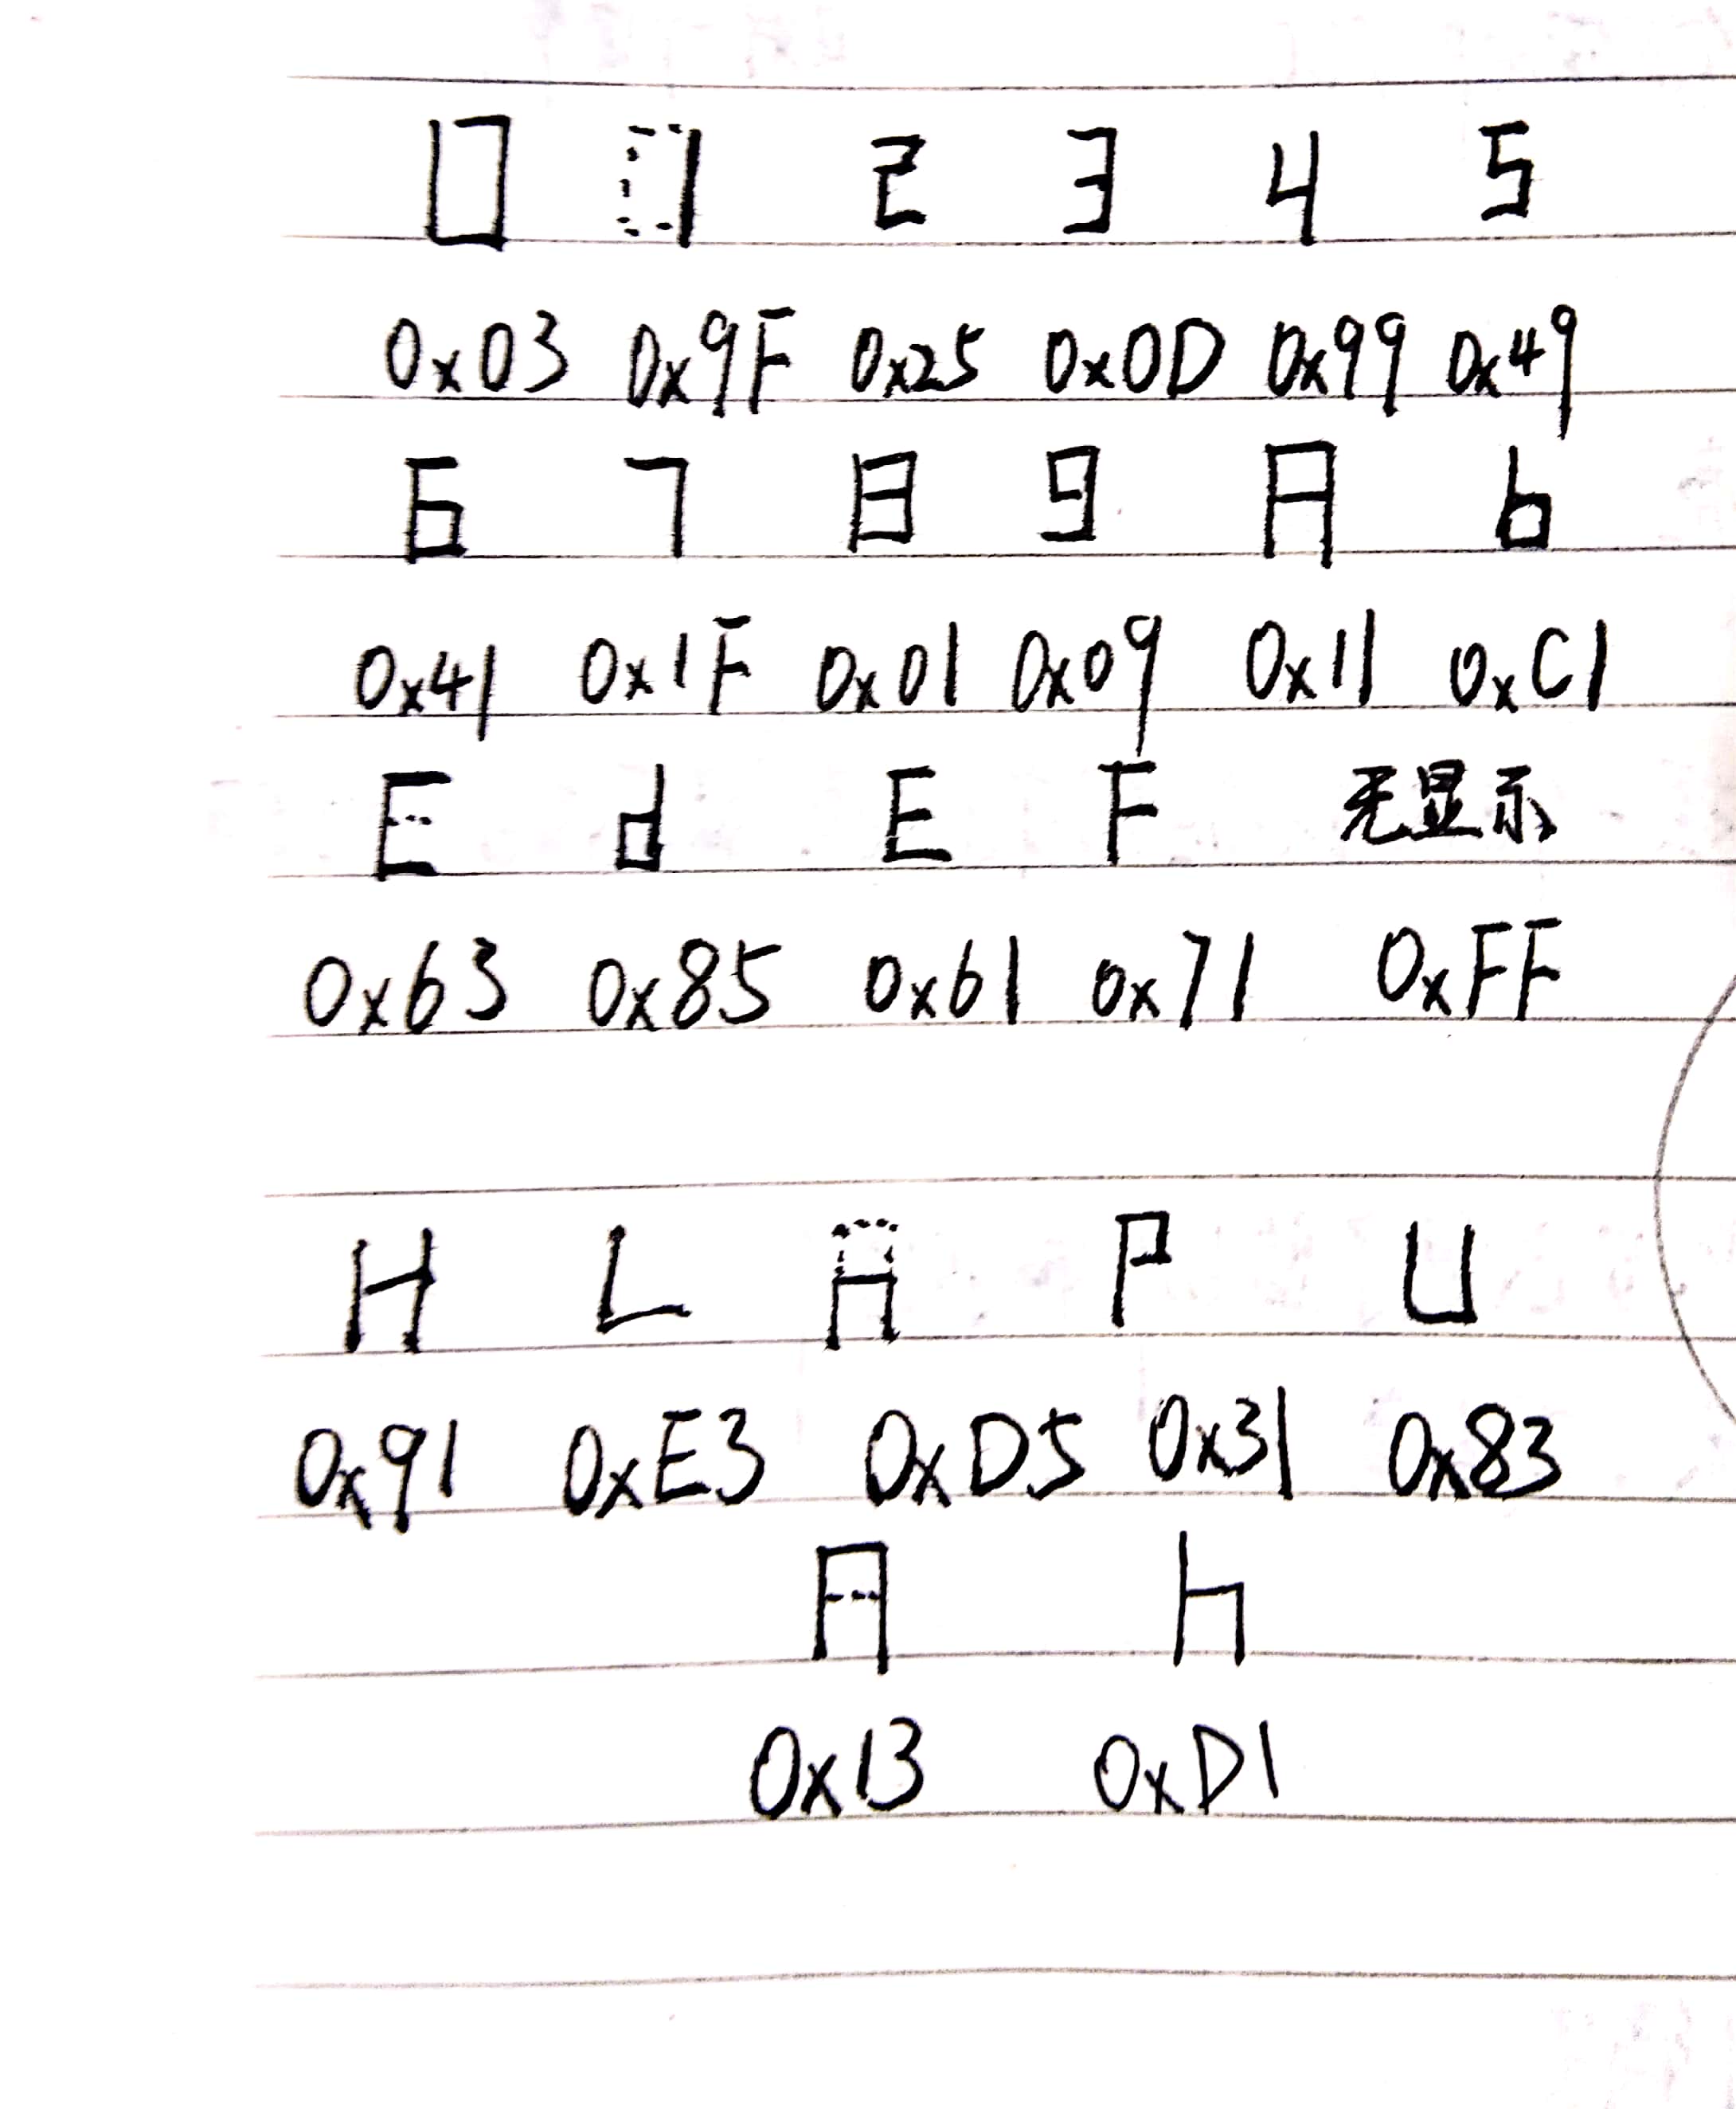 0 1 2 3 4 5
0x03 0x9F 0x25 0x0D 0x99 0x49
6 7 8 9 A b
0x41 0x1F 0x01 0x09 0x11 0xC1
C d E F 无显示
0x63 0x85 0x61 0x71 0xFF
H L n P U
0x91 0xE3 0xD5 0x31 0x83
A h
0x13 0xD1